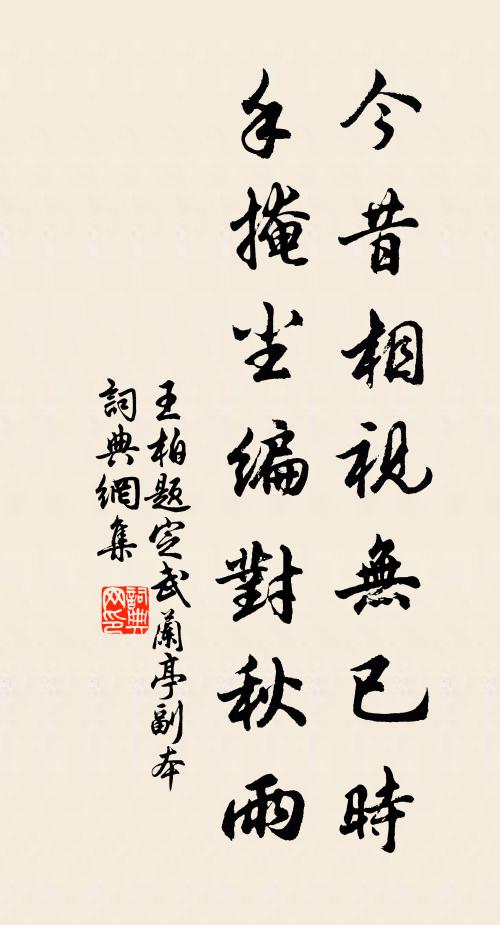 今昔相視無已時
手掩尘编對秋雨
王柏题定武蘭亭副本
詞典網集
詞典网印